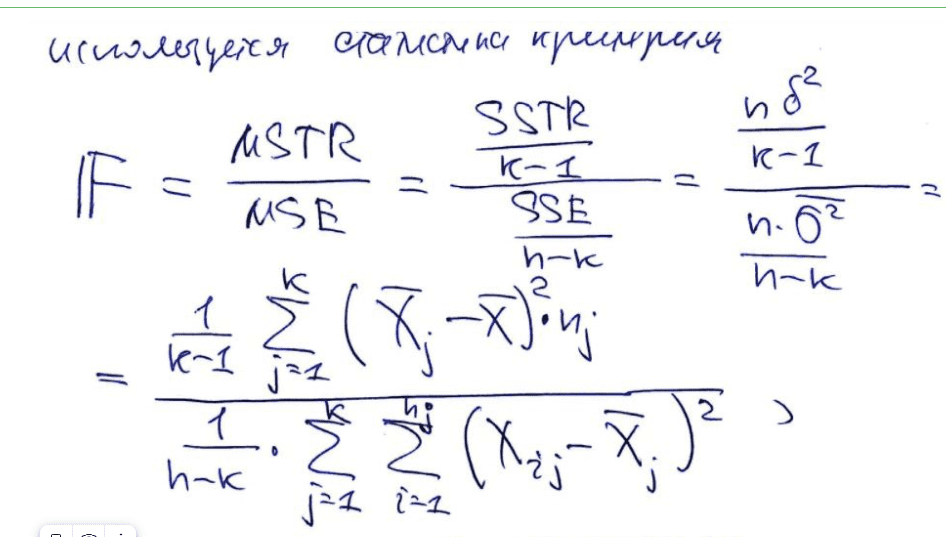 используется статистика критерия
𝔽 = MSTR / MSE = (SSTR / (k-1)) / (SSE / (n-k)) = (n δ² / (k-1)) / (n·σ̅² / (n-k)) =
= (1/(k-1) ∑_{j=1}^{k} (X̅_j - X̅)²·n_j) / (1/(n-k) · ∑_{j=1}^{k} ∑_{i=1}^{n_j} (X_{ij} - X̅_j)²) ,